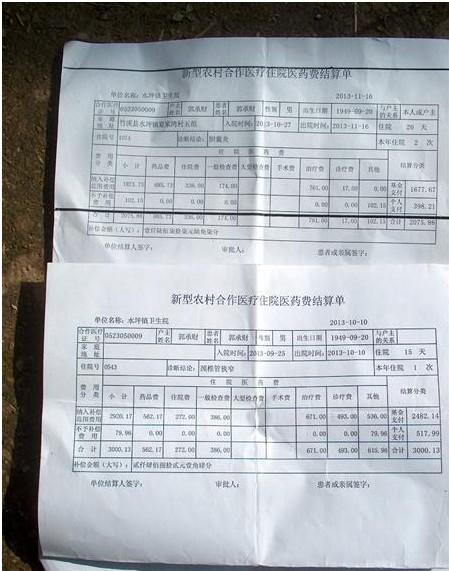 新型农村合作医疗住院医药费结算单
单位名称：水坪镇卫生院 2013-11-16
合作医疗证号 0523050009 户主姓名 郭承财 患者姓名 郭承财 性别 男 出生日期 1949-09-20 与户主的关系 本人或户主
家庭地址 竹溪县水坪镇 五组 入院时间：2013-10-27 出院时间：2013-11-16 住院 20 天
住院号 诊断结论：胆囊炎 本年住院 2 次
费用分类 住院医药费 结算分类
小计 药品费 住院费 一般检查费 大型检查费 手术费 治疗费 诊疗费 其他
纳入补偿范围费用 1973.73 685.73 336.00 174.00 761.00 17.00 0.00 基金支付 1677.67
不予补偿费用 102.15 0.00 0.00 0.00 0.00 0.00 102.15 个人支付 398.21
合计 2075.88 685.73 336.00 174.00 761.00 17.00 102.15 合计 2075.88
补偿金额（大写）：壹仟陆佰柒拾柒元陆角柒分
单位结算人签字： 审批人： 患者或亲属签字：
新型农村合作医疗住院医药费结算单
单位名称：水坪镇卫生院 2013-10-10
合作医疗证号 0523050009 户主姓名 郭承财 患者姓名 郭承财 性别 男 出生日期 1949-09-20 与户主的关系
家庭地址 入院时间：2013-09-25 出院时间：2013-10-10 住院 15 天
住院号 0543 诊断结论：颈椎管狭窄 本年住院 1 次
费用分类 住院医药费 结算分类
小计 药品费 住院费 一般检查费 大型检查费 手术费 治疗费 诊疗费 其他
纳入补偿范围费用 2920.17 562.17 272.00 386.00 671.00 493.00 536.00 基金支付 2482.14
不予补偿费用 79.96 0.00 0.00 0.00 0.00 0.00 79.96 个人支付 517.99
合计 3000.13 562.17 272.00 386.00 671.00 493.00 615.96 合计 3000.13
补偿金额（大写）：贰仟肆佰捌拾贰元壹角肆分
单位结算人签字： 审批人： 患者或亲属签字：